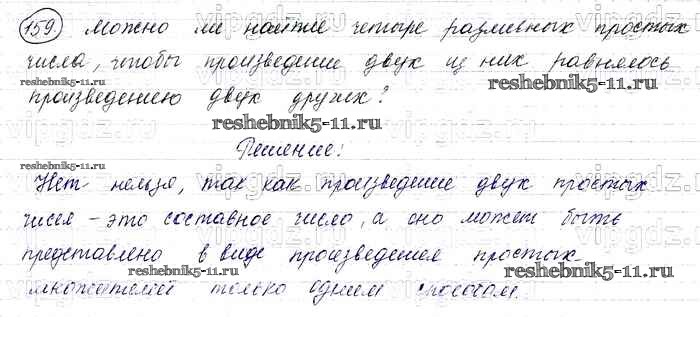 159. Можно ли найти четыре различных простых
числа, чтобы произведение двух из них равнялось
reshebnik5-11.ru
произведению двух других?
reshebnik5-11.ru
Решение:
reshebnik5-11.ru
Нет нельзя, так как произведение двух простых
чисел – это составное число, а оно может быть
представлено в виде произведения простых
reshebnik5-11.ru
reshebnik5-11.ru
множителей только одним способом.